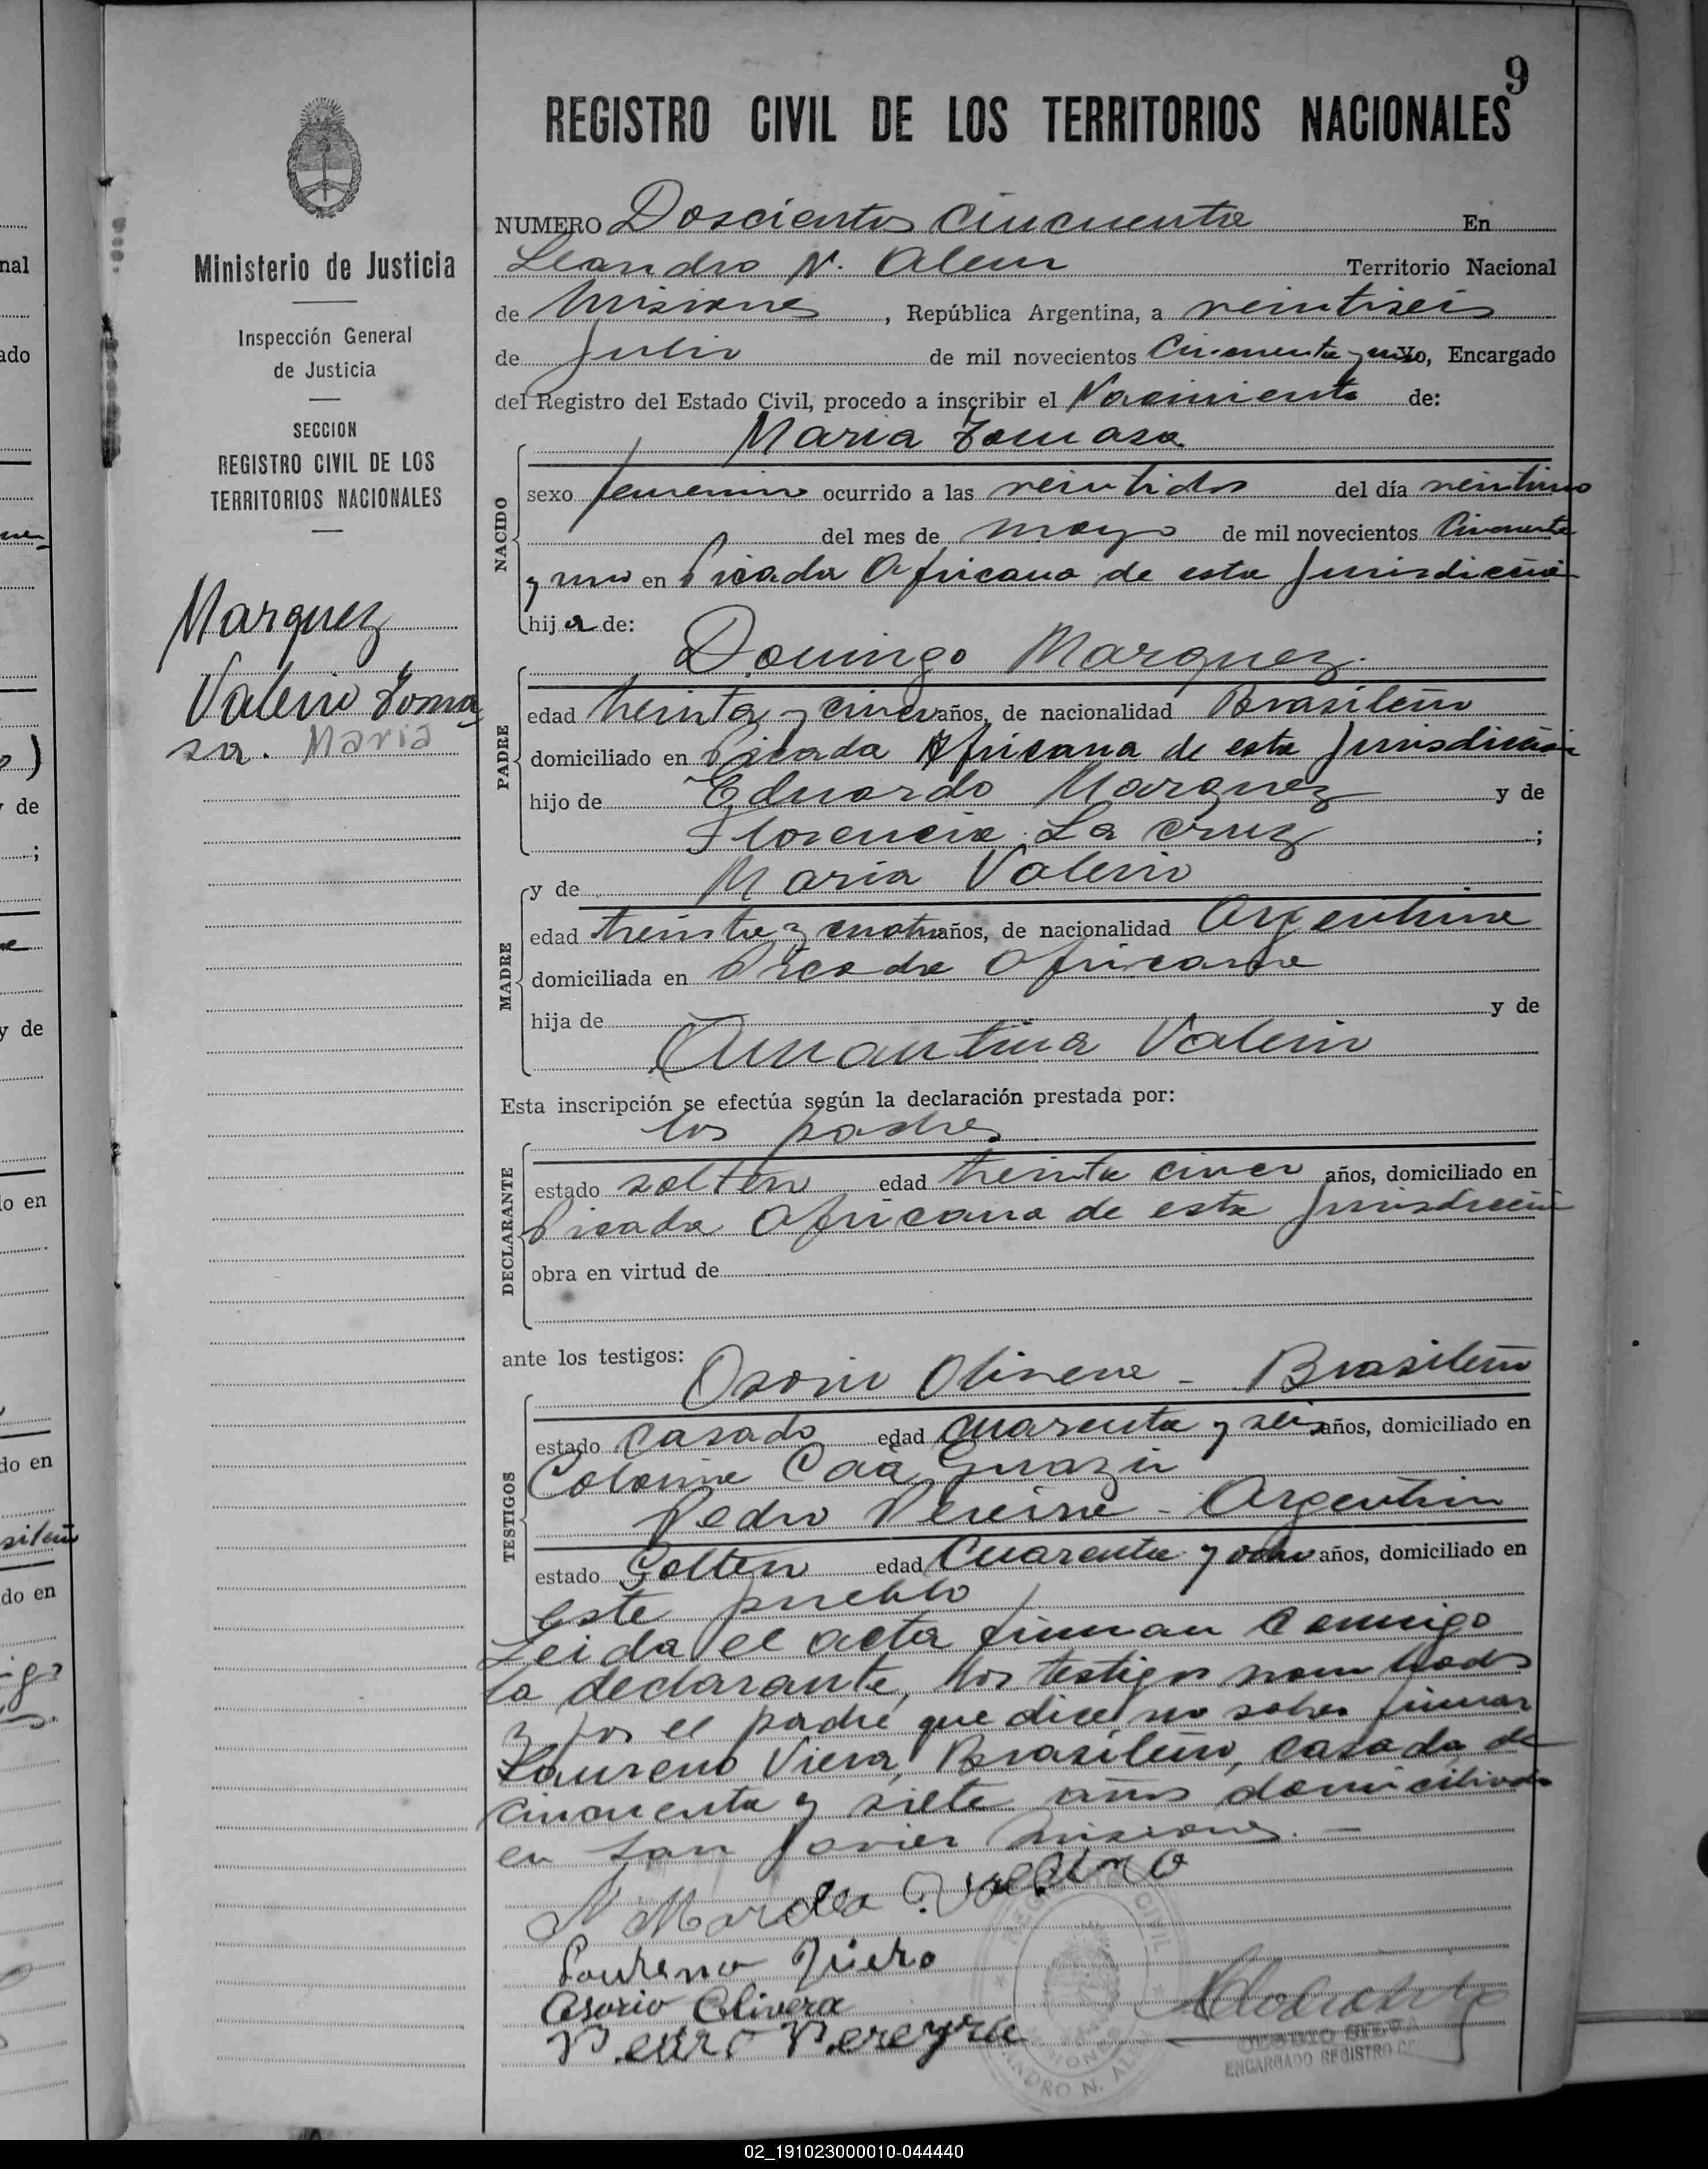 9
REGISTRO CIVIL DE LOS TERRITORIOS NACIONALES
Ministerio de Justicia
Inspección General
de Justicia
SECCION
REGISTRO CIVIL DE LOS
TERRITORIOS NACIONALES
Marquez
Valerio Toma
sa. Maria
NUMERO Doscientos cincuenta En
Leandro N. Alem Territorio Nacional
de Misiones, República Argentina, a veintiseis
de Julio de mil novecientos Cincuenta y uno Yo, Encargado
del Registro del Estado Civil, procedo a inscribir el Nacimiento de:
Maria Tomasa
NACIDO
sexo femenino ocurrido a las veintidos del día veintiuno
del mes de mayo de mil novecientos Cincuenta
y uno en Picada Africana de esta Jurisdicción
hija de:
Domingo Marquez
PADRE
edad treinta y cinco años, de nacionalidad Brasileño
domiciliado en Picada Africana de esta Jurisdicción
hijo de Eduardo Marquez y de
Florencia La Cruz ;
MADRE
y de Maria Valerio
edad treinta y cuatro años, de nacionalidad Argentina
domiciliada en Picada Africana
hija de y de
Amantina Valerio
Esta inscripción se efectúa según la declaración prestada por:
los padres
DECLARANTE
estado soltero edad treinta cinco años, domiciliado en
Picada Africana de esta Jurisdicción
obra en virtud de
ante los testigos:
Osorio Olivera - Brasileño
TESTIGOS
estado Casado edad cuarenta y seis años, domiciliado en
Colonia Caá Guazú
Pedro Pereira - Argentino
estado Soltero edad Cuarenta y ocho años, domiciliado en
este pueblo
Leida el acta firman conmigo
la declarante, los testigos nombrados
y por el padre que dice no saber firmar
Laureno Viera, Brasileño, casado, de
cincuenta y siete años domiciliado
en San Javier Misiones. —
Osorio Olivera
Pedro Pereyra
ENCARGADO REGISTRO C
02_191023000010-044440